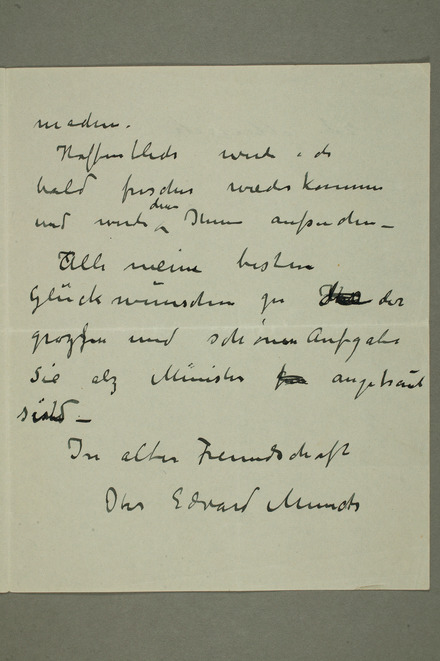 machen.
Hoffentlich werde ich
bald frisch wieder kommen
und werde dann Ihnen aufsuchen –
Alle meine besten
Glückwünschen zu der
grozsen und schönen Aufgabe
Sie alz Minister angetraut
sind –
In alter Freundschaft
Ihr Edvard Munch